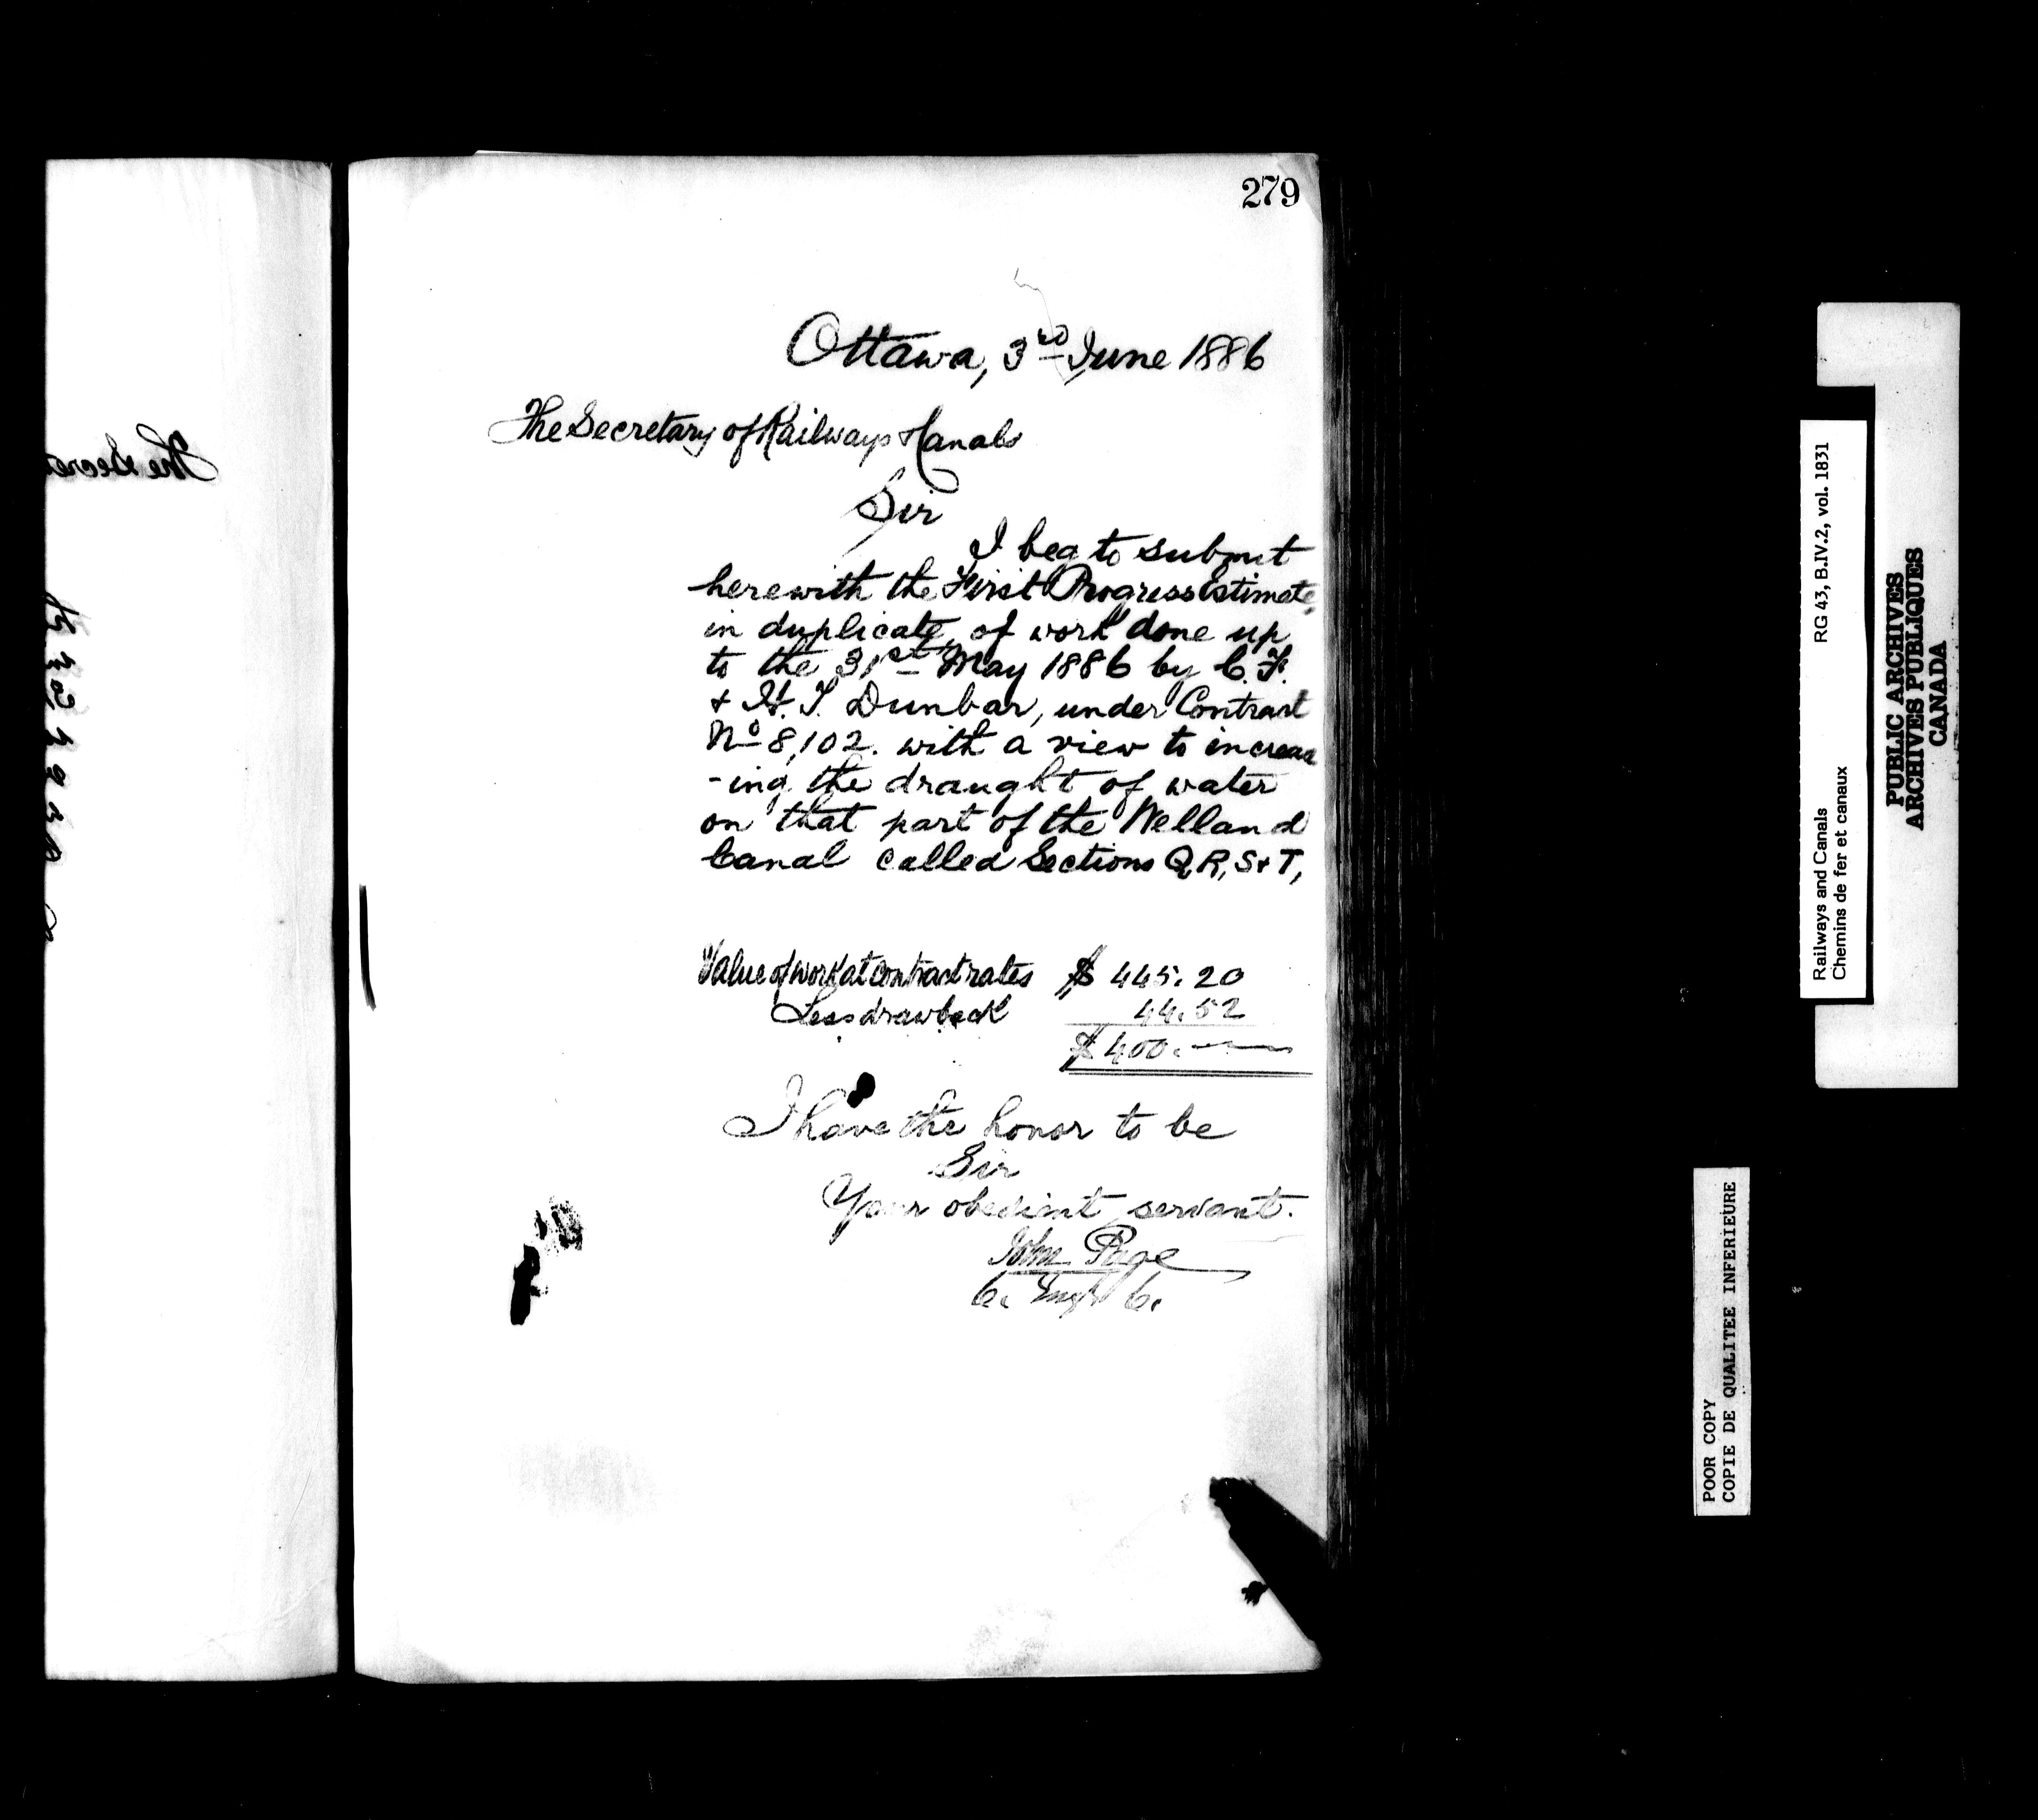 279
Ottawa, 3rd June 1886
The Secretary of Railways & Canals
Sir
I beg to submit
herewith the First Progress Estimate,
in duplicate, of work done up
to the 31st May 1886 by C. F.
& H. T. Dunbar, under Contract
No 8,102. with a view to increas
-ing the draught of water
on that part of the Welland
Canal called Sections Q, R, S & T,
Value of work at contract rates $ 445.20
Less drawback 44.52
$ 400.
I have the honor to be
Sir
Your obedient servant.
John Page
C. Engr C.
The Secre
RG 43, B.IV.2, vol. 1831
Railways and Canals
Chemins de fer et canaux
PUBLIC ARCHIVES
ARCHIVES PUBLIQUES
CANADA
POOR COPY
COPIE DE QUALITEE INFERIEURE